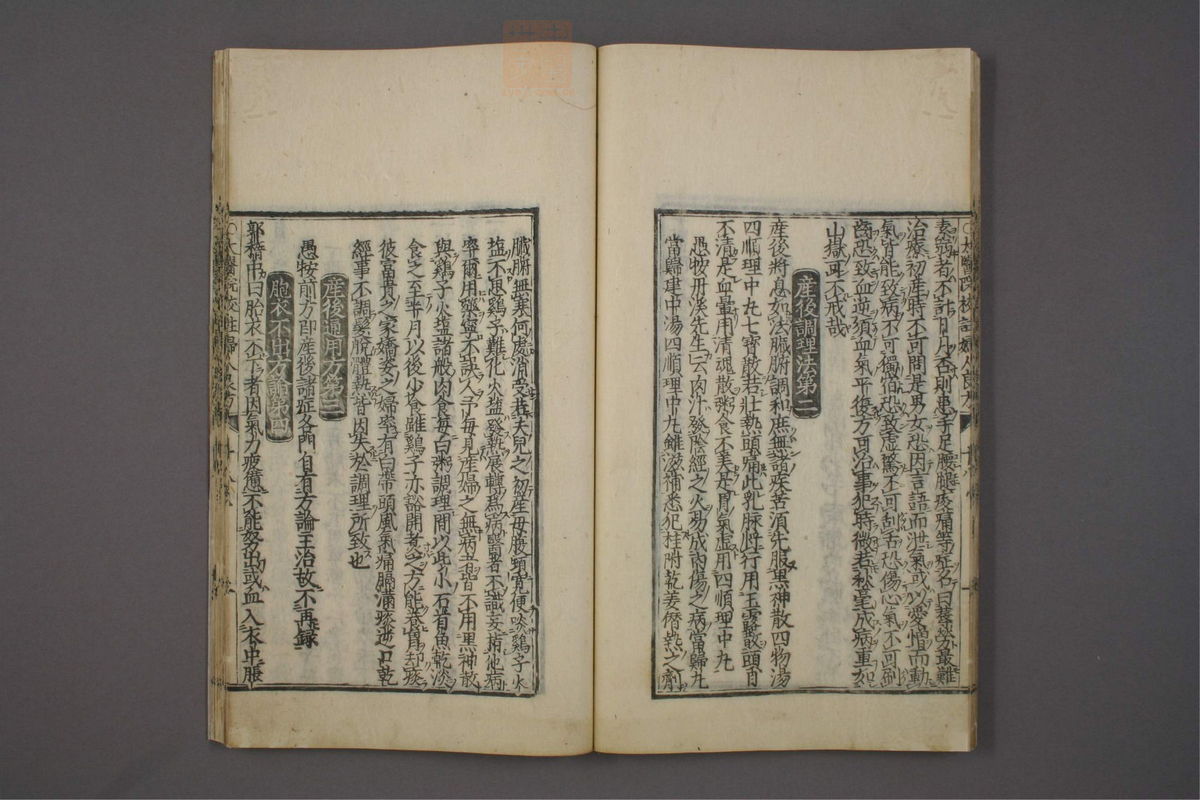 太醫院校註婦人良方
素弱者不計日月否則患手足腰腿痠痛等症名曰蓐勞最難
治療初產時不可問是男女恐因言語而泄氣或以愛憎而動
氣皆能致病不可獨宿恐致虛驚不可刮舌恐傷心氣不可刷
齒恐致血逆須血氣平復方可治事犯時微若秋毫成病重如
山嶽可不戒哉
產後調理法第二
產後將息如法臟腑調和庶無諸疾苦須先服黑神散四物湯
四順理中丸七寶散若壯熱頭痛此乳脉將行用玉露散頭目
不清是血暈用清魂散粥食不美是胃氣虛用四順理中丸
愚按丹溪先生云肉汁發陰經之火易成內傷之病當歸丸
當歸建中湯四順理中丸雖滋補悉犯桂附乾姜僭熱之劑
臟腑無寒何處消受若夫兒之初產母腹頓寬便啖鷄子火
塩不思鷄子難化火塩發熱展轉爲病醫者不識妄指他病
率爾用藥寧不誤人予每見產婦之無病者皆不用黑神散
與鷄子火塩諸般肉食每白粥調理間以些小石首魚乾淡
食之至半月以後少食雖鷄子亦豁開煮之方能養胃却痰
彼富貴之家嬌姿之婦率有白帶頭風氣痛膈滿痰逆口乾
經事不調髮脫體熱皆因失於調理所致也
產後通用方第三
愚按前方即產後諸症各門自有方論主治故不再錄
胞衣不出方論第四
郭稽中曰胎衣不下者因氣力疲憊不能努出或血入衣中脹
太醫院校註婦人良方